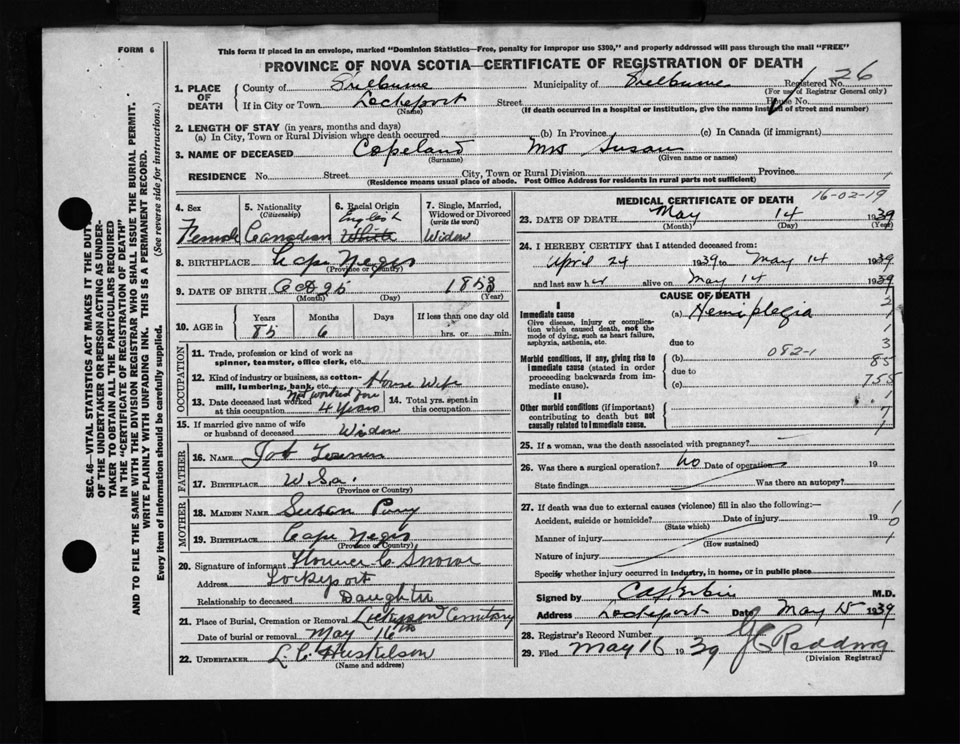 FORM 6
This form if placed in an envelope, marked "Dominion Statistics—Free, penalty for improper use $300," and properly addressed will pass through the mail "FREE"
PROVINCE OF NOVA SCOTIA—CERTIFICATE OF REGISTRATION OF DEATH
1. PLACE OF DEATH
County of Shelburne Municipality of Shelburne Registered No. 26
(For use of Registrar General only)
If in City or Town Lockeport Street House No.
(Name) (If death occurred in a hospital or institution, give the name instead of street and number)
2. LENGTH OF STAY (in years, months and days)
(a) In City, Town or Rural Division where death occurred (b) In Province (c) In Canada (if immigrant)
3. NAME OF DECEASED Copeland Mrs Susan
(Surname) (Given name or names)
RESIDENCE No. Street City, Town or Rural Division Province
(Residence means usual place of abode. Post Office Address for residents in rural parts not sufficient)
SEC. 46—VITAL STATISTICS ACT MAKES IT THE DUTY
OF THE UNDERTAKER OR PERSON ACTING AS UNDER-
TAKER TO OBTAIN ALL THE PARTICULARS REQUIRED
IN THE "CERTIFICATE OF REGISTRATION OF DEATH"
AND TO FILE THE SAME WITH THE DIVISION REGISTRAR WHO SHALL ISSUE THE BURIAL PERMIT.
WRITE PLAINLY WITH UNFADING INK. THIS IS A PERMANENT RECORD.
Every item of information should be carefully supplied. (See reverse side for instructions.)
4. Sex
Female
5. Nationality
(Citizenship)
Canadian
6. Racial Origin
English
White
7. Single, Married,
Widowed or Divorced
(write the word)
Widow
8. BIRTHPLACE Cape Negro
(Province or Country)
9. DATE OF BIRTH Oct 25 1853
(Month) (Day) (Year)
10. AGE in
Years Months Days If less than one day old
85 6 hrs. or min.
OCCUPATION
11. Trade, profession or kind of work as
spinner, teamster, office clerk, etc.
12. Kind of industry or business, as cotton-
mill, lumbering, bank, etc. House Wife
13. Date deceased last worked
at this occupation Not worked for 4 years
14. Total yrs. spent in
this occupation
15. If married give name of wife
or husband of deceased Widow
FATHER
16. NAME Job
17. BIRTHPLACE
(Province or Country)
MOTHER
18. MAIDEN NAME Susan
19. BIRTHPLACE Cape Negro
(Province or Country)
20. Signature of informant C. Snow
Address Lockeport
Relationship to deceased Daughter
21. Place of Burial, Cremation or Removal Cemetery
Date of burial or removal May 16th
22. UNDERTAKER L. C. Huskelson
(Name and address)
MEDICAL CERTIFICATE OF DEATH
16-02-19
23. DATE OF DEATH May 14 1939
(Month) (Day) (Year)
24. I HEREBY CERTIFY that I attended deceased from:
April 24 1939 to May 14 1939
and last saw her alive on May 14 1939
CAUSE OF DEATH
I
Immediate cause
Give disease, injury or complica-
tion which caused death, not the
mode of dying, such as heart failure,
asphyxia, asthenia, etc.
(a) Hemiplegia
due to
Morbid conditions, if any, giving rise to
immediate cause (stated in order
proceeding backwards from im-
mediate cause).
(b) 082-1
due to
(c)
II
Other morbid conditions (if important)
contributing to death but not
causally related to immediate cause.
2
1
3
85
755
1
7
7
25. If a woman, was the death associated with pregnancy?
26. Was there a surgical operation? No Date of operation 19
State findings Was there an autopsy?
27. If death was due to external causes (violence) fill in also the following:—
Accident, suicide or homicide? Date of injury 19
(State which)
Manner of injury
(How sustained)
Nature of injury
Specify whether injury occurred in industry, in home, or in public place
Signed by M.D.
Address Lockeport Date May 15 1939
28. Registrar's Record Number
29. Filed May 16 1939 Redding
(Division Registrar)